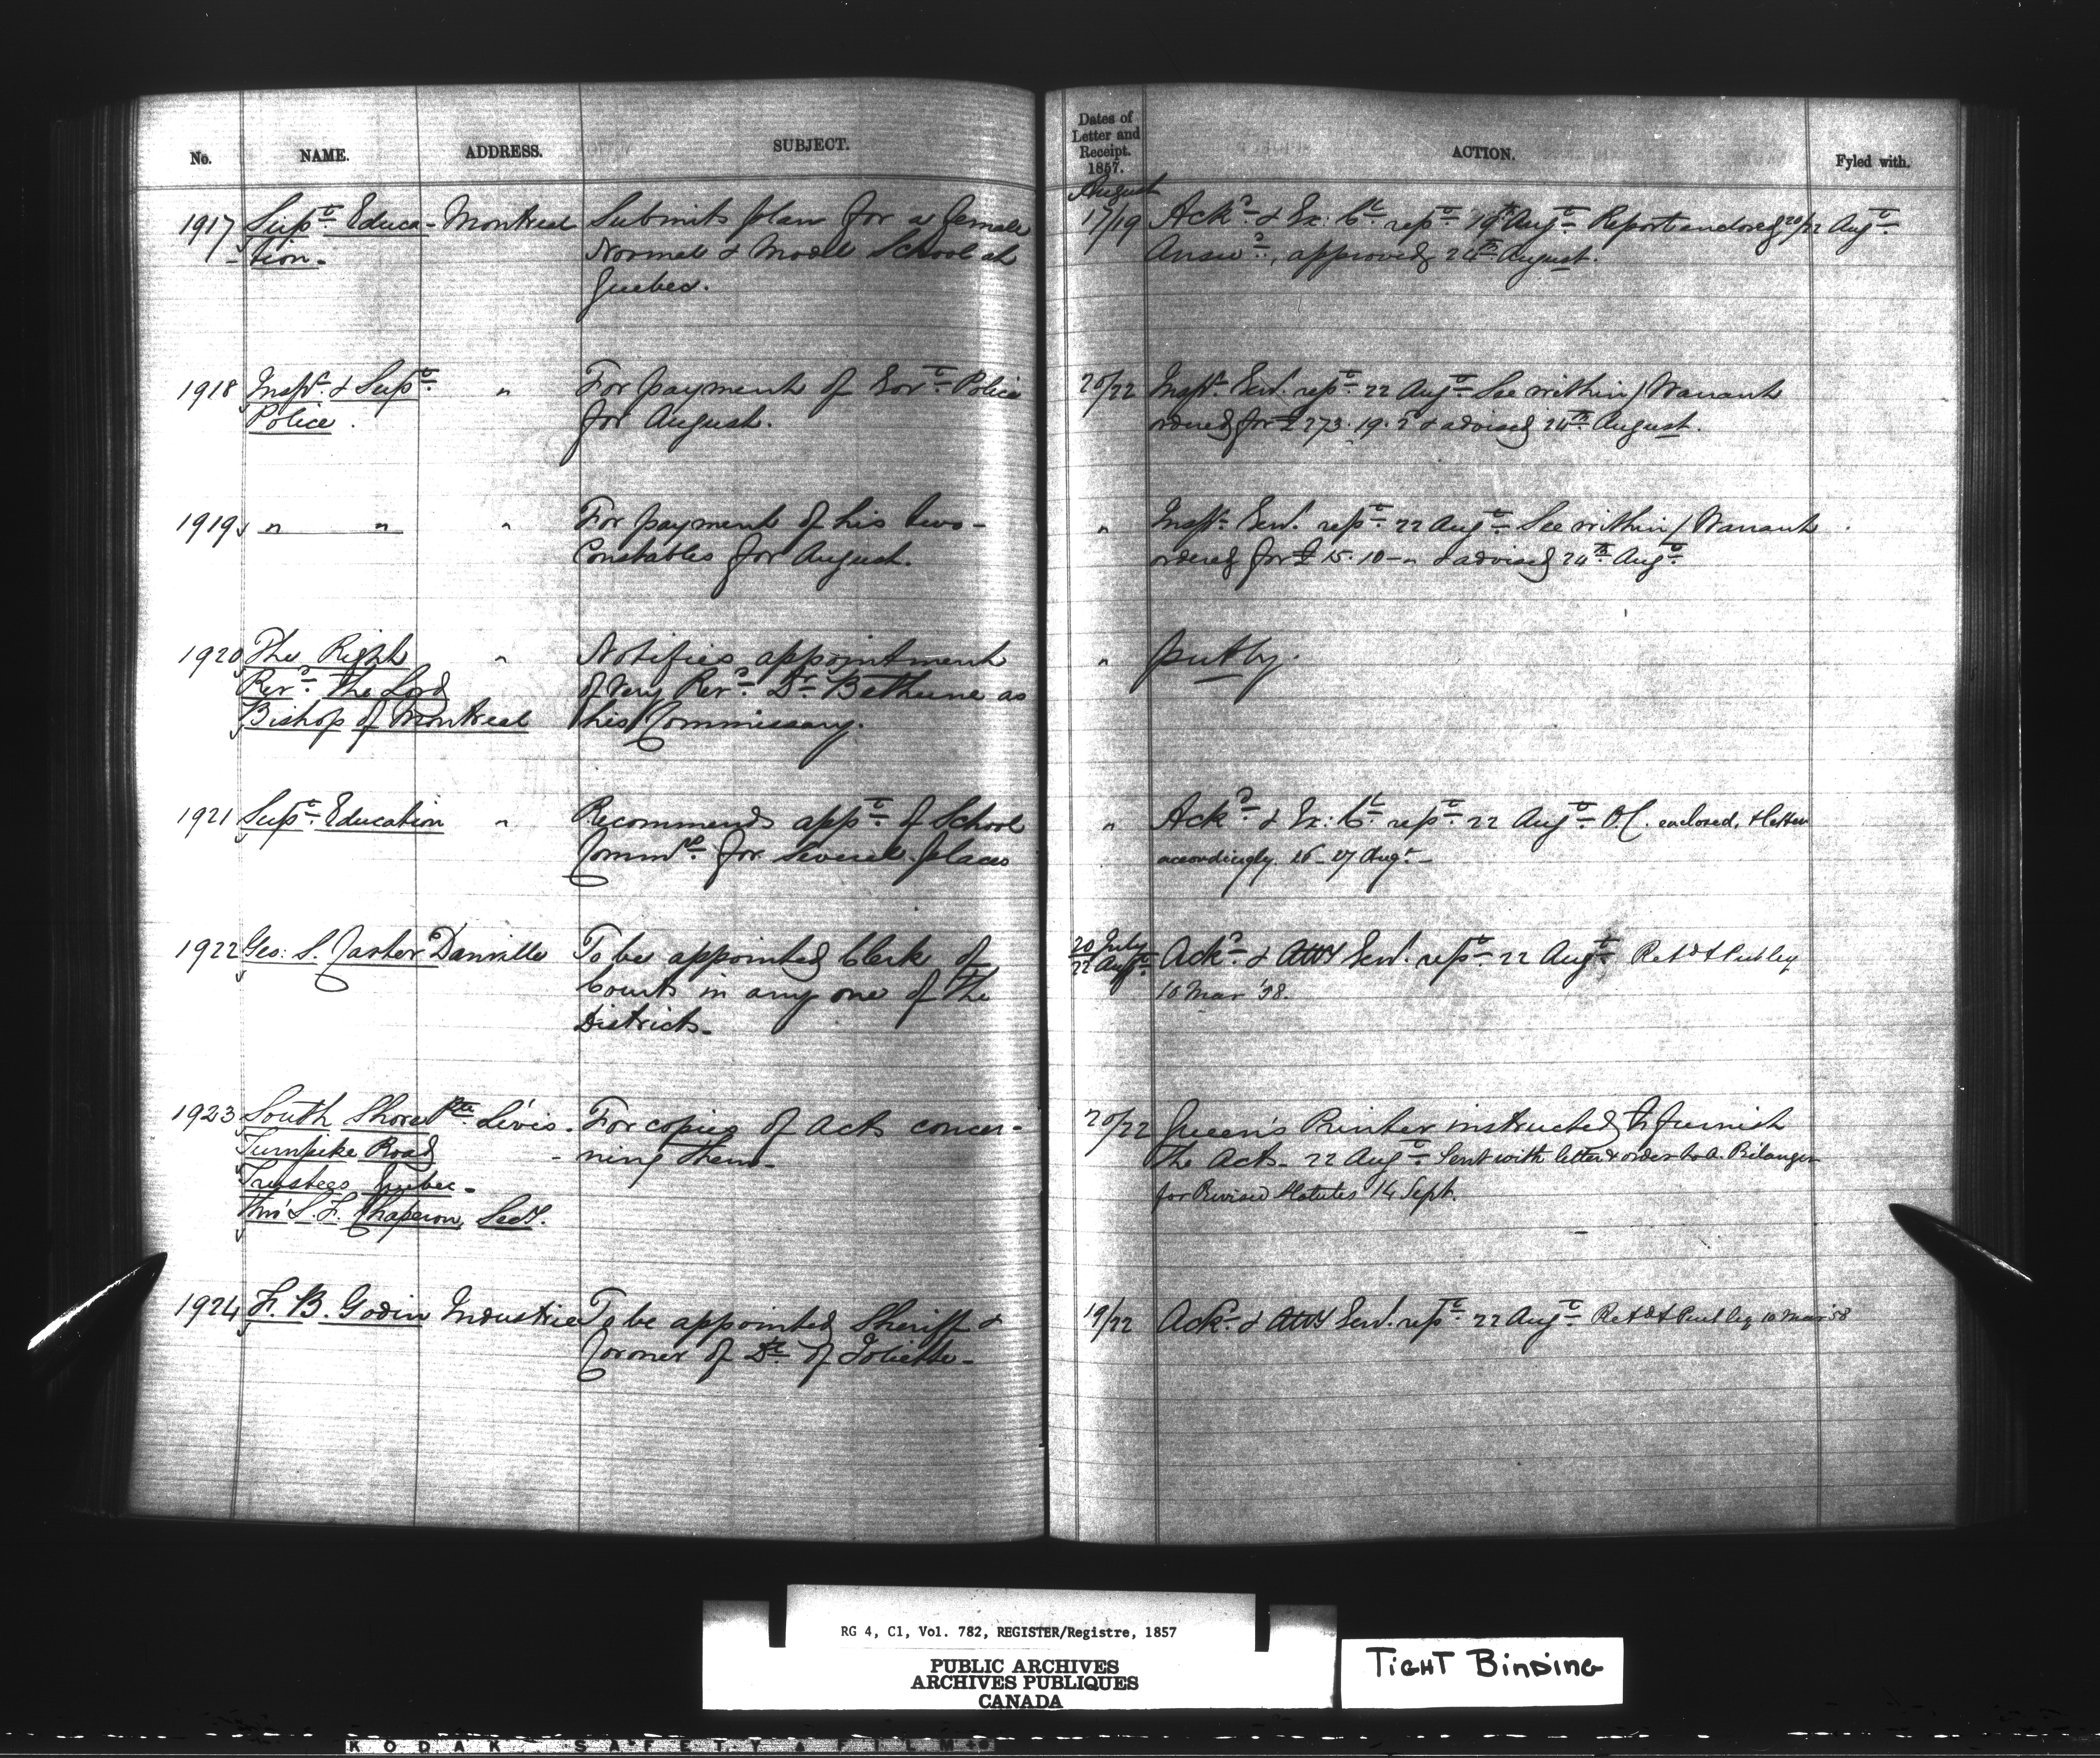 No. NAME. ADDRESS. SUBJECT.
Dates of Letter and Receipt. 1857. ACTION. Fyled with.
August
1917 Supt Educa- Montreal Submits plan for a female 17/19 Ackd & Ex: Cl rept 19 Augt Report enclosed 20/22 Augt
-tion- Normal & Model School at Answd, approved 24th August.
Quebec.
1918 Inspr & Supt " For payment of Govt Police 20/22 Inspr Genl. rept 22 Augt See within / Warrant
Police. for August. ordered for £273. 19. 2 & advised 24th August.
1919 " " " For payment of his two- " Inspr Genl. rept 22 Augt See within / Warrant
Constables for August. ordered for £15. 10 - " & advised 24th Augt
1920 The Right " Notifies appointment " put by.
Revd The Lord of Very Revd Dr Bethune as
Bishop of Montreal his Commissary.
1921 Supt Education " Recommends appt of School " Ackd & Ex: Cl rept 22 Augt O.C. enclosed, & letter
Commrs for several places accordingly. 26-27 Augt-
1922 Geo: S. Carter Danville To be appointed Clerk of 20 July Ackd & Atty Genl. rept 22 Augt Retd & Put by
Courts in any one of the 22 Augt 10 Mar '58.
Districts-
1923 South Shore Lévis. For copies of Acts concer- 20/22 Queen's Printer instructed to furnish
Turnpike Road -ning them- the Acts- 22 Augt Sent with letter & order to A. Bélanger
Trustees Quebec- for Revised Statutes 14 Sept.
L. F. Chaperon, Secy.
1924 F. B. Godin Industrie To be appointed Sheriff & 19/22 Ackd & Atty Genl. rept 22 Augt Retd & Put by 10 Mar '58
Coroner of Dt of Joliette-
RG 4, C1, Vol. 782, REGISTER/Registre, 1857
PUBLIC ARCHIVES
ARCHIVES PUBLIQUES
CANADA
TIGHT BINDING
KODAK SAFETY FILM